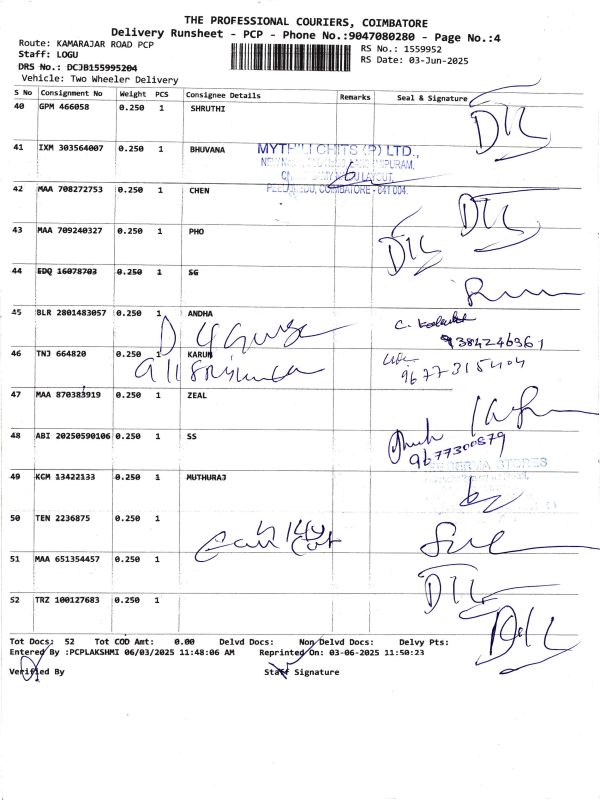 THE PROFESSIONAL COURIERS, COIMBATORE
Delivery Runsheet - PCP - Phone No.:9047080280 - Page No.:4
Route: KAMARAJAR ROAD PCP
Staff: LOGU
DRS No.: DCJB155995204
Vehicle: Two Wheeler Delivery
RS No.: 1559952
RS Date: 03-Jun-2025
S No Consignment No Weight PCS Consignee Details Remarks Seal & Signature
40 GPM 466058 0.250 1 SHRUTHI
DTC
41 IXM 303564007 0.250 1 BHUVANA
MYTHILI CHITS (P) LTD.,
COIMBATORE - 641 004.
42 MAA 708272753 0.250 1 CHEN
DTC
43 MAA 709240327 0.250 1 PHO
DTC
44 EDQ 16078703 0.250 1 SG
45 BLR 2801483057 0.250 1 ANDHA
9384246961
46 TNJ 664820 0.250 1 KARUN
9677315404
47 MAA 870383919 0.250 1 ZEAL
48 ABI 20250590106 0.250 1 SS
9677300579
STORES
49 KCM 13422133 0.250 1 MUTHURAJ
50 TEN 2236875 0.250 1
51 MAA 651354457 0.250 1
DTC
52 TRZ 100127683 0.250 1
DTC
Tot Docs: 52 Tot COD Amt: 0.00 Delvd Docs: Non Delvd Docs: Delvy Pts:
Entered By :PCPLAKSHMI 06/03/2025 11:48:06 AM Reprinted On: 03-06-2025 11:50:23
Verified By Staff Signature